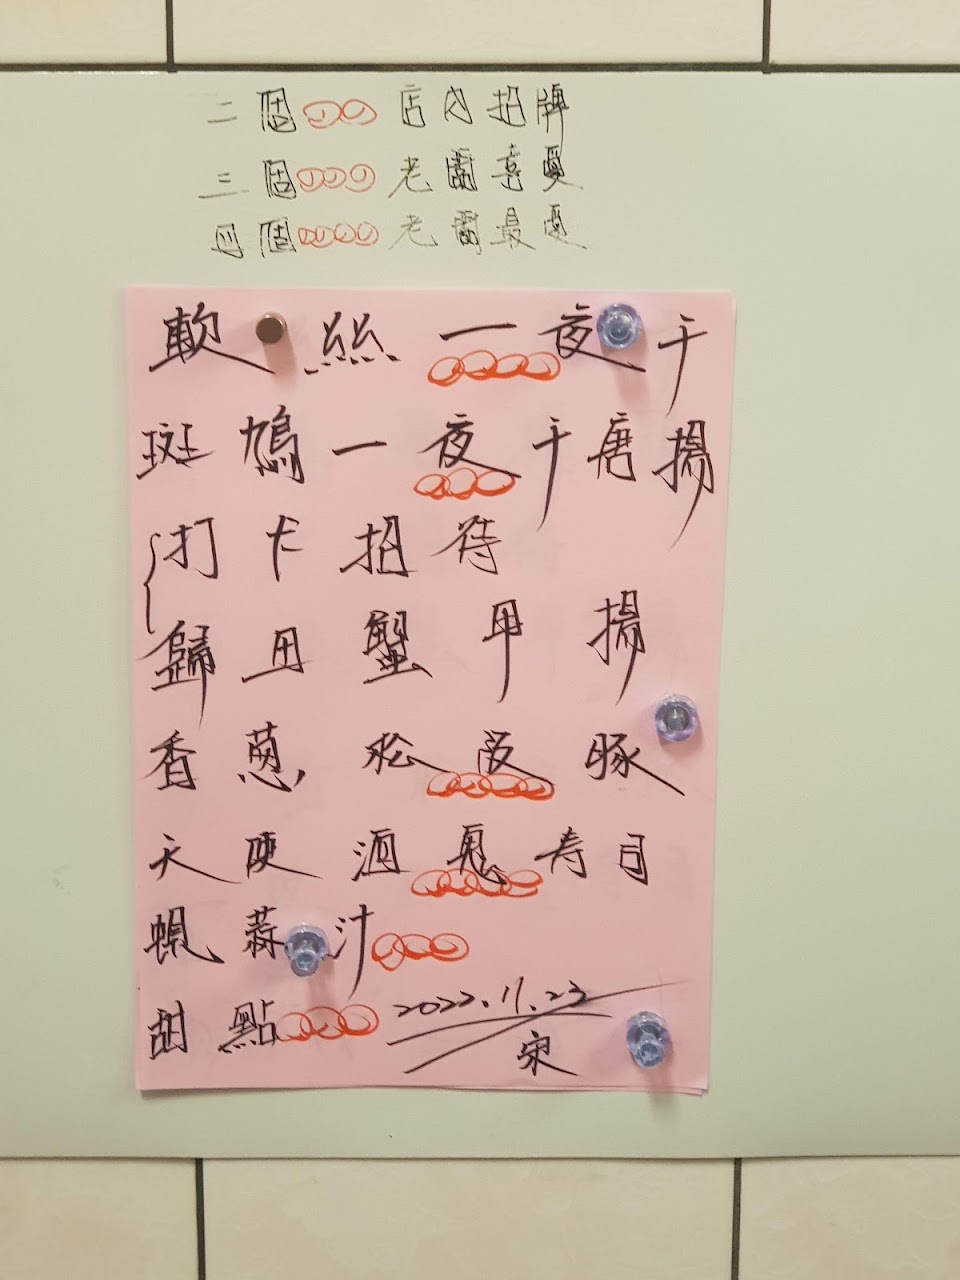 二個 店內招牌
三個 老闆喜愛
四個 老闆最愛
軟絲一夜干
斑鳩一夜干唐揚
打卡招待
歸田蟹甲揚
香蔥松阪豚
天使酒鬼壽司
蜆蒜汁
甜點 2022.11.23
宋